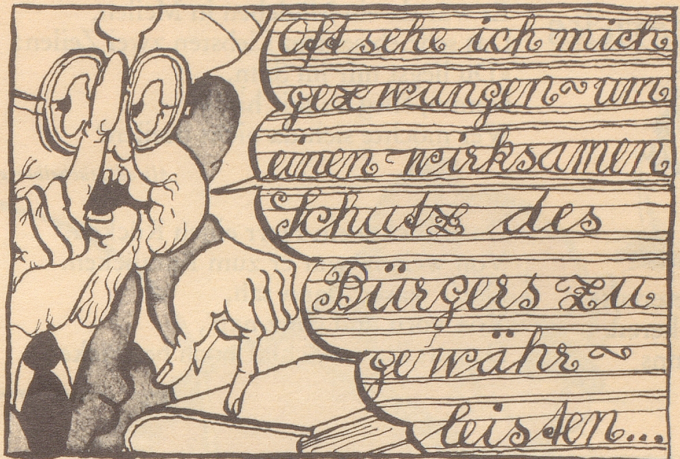 Oft sehe ich mich
gezwungen~um
einen wirksamen
Schutz des
Bürgers zu
gewähr~
leisten...